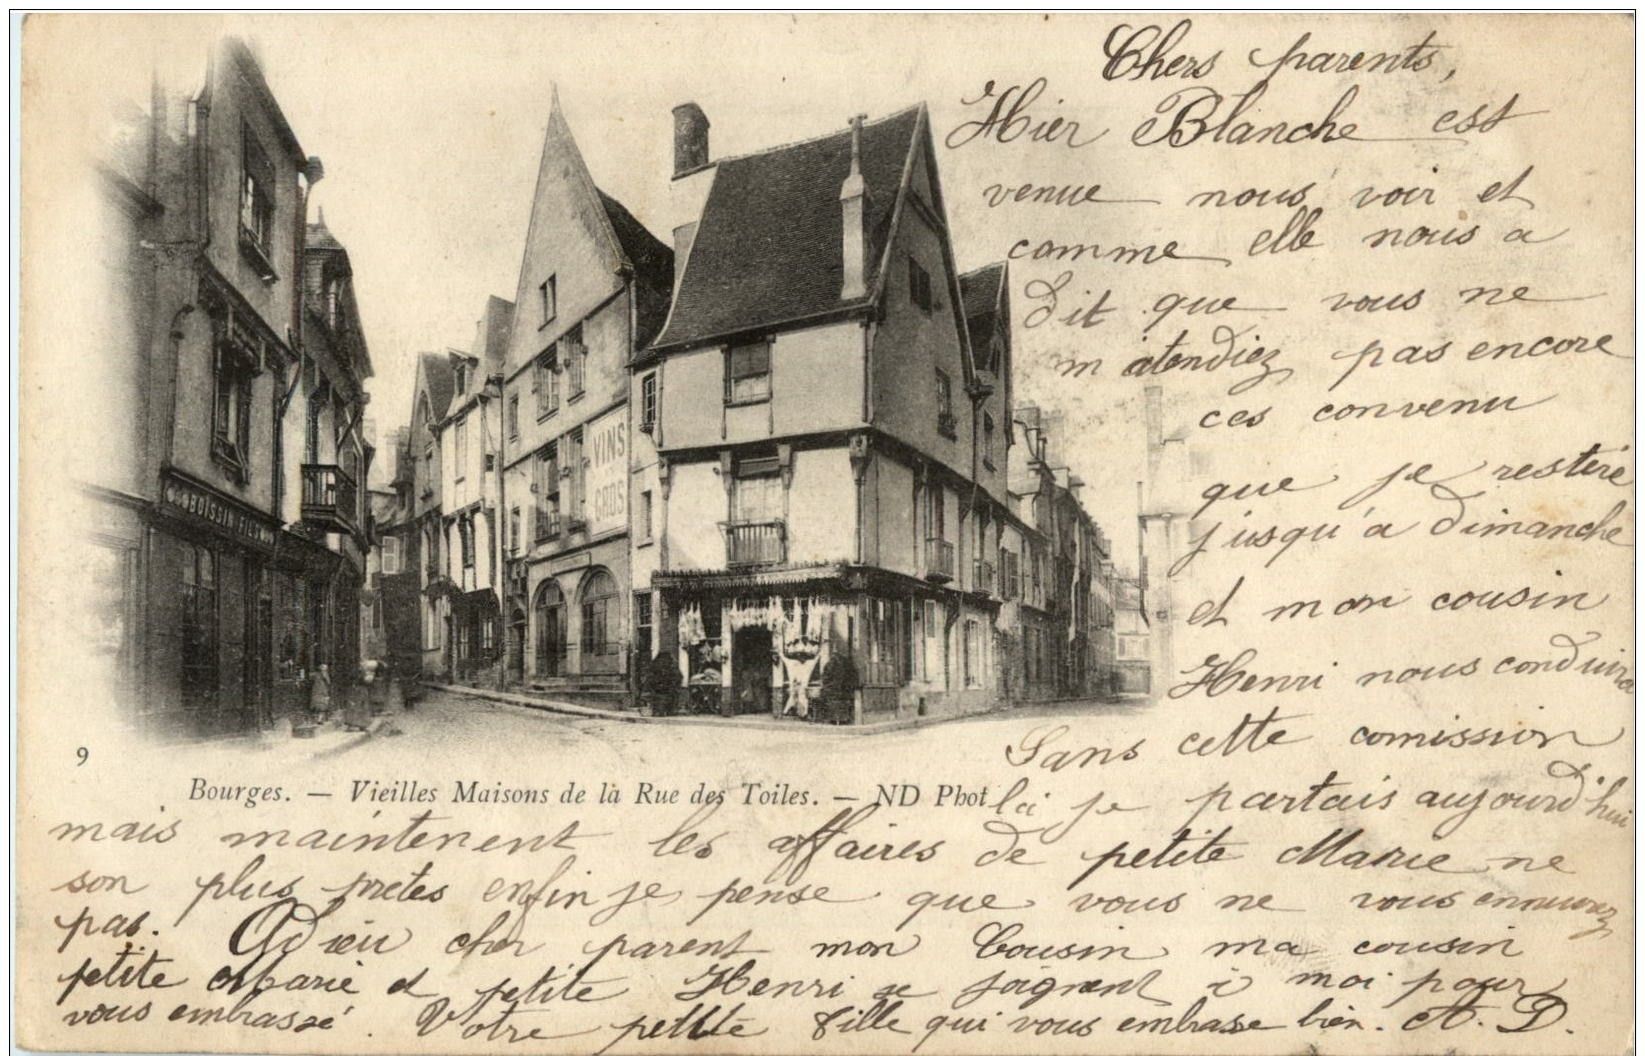 Chers parents,
Hier Blanche est
venue nous voir et
comme elle nous a
dit que vous ne
m'atendiez pas encore
ces convenu
que je resteré
jusqu'a dimanche
et mon cousin
Henri nous conduira
Sans cette comission
la je partais aujourd'hui
mais maintenent les affaires de petite Marie ne
son plus pretes enfin je pense que vous ne vous ennuirez
pas. Adieu cher parent mon Cousin ma cousin
petite Marie et petite Henri se joignent à moi pour
vous embrassé. Votre petite fille qui vous embrasse bien. A. D.
BOISSIN FILS
VINS
GROS
9
Bourges. — Vieilles Maisons de là Rue des Toiles. — ND Phot